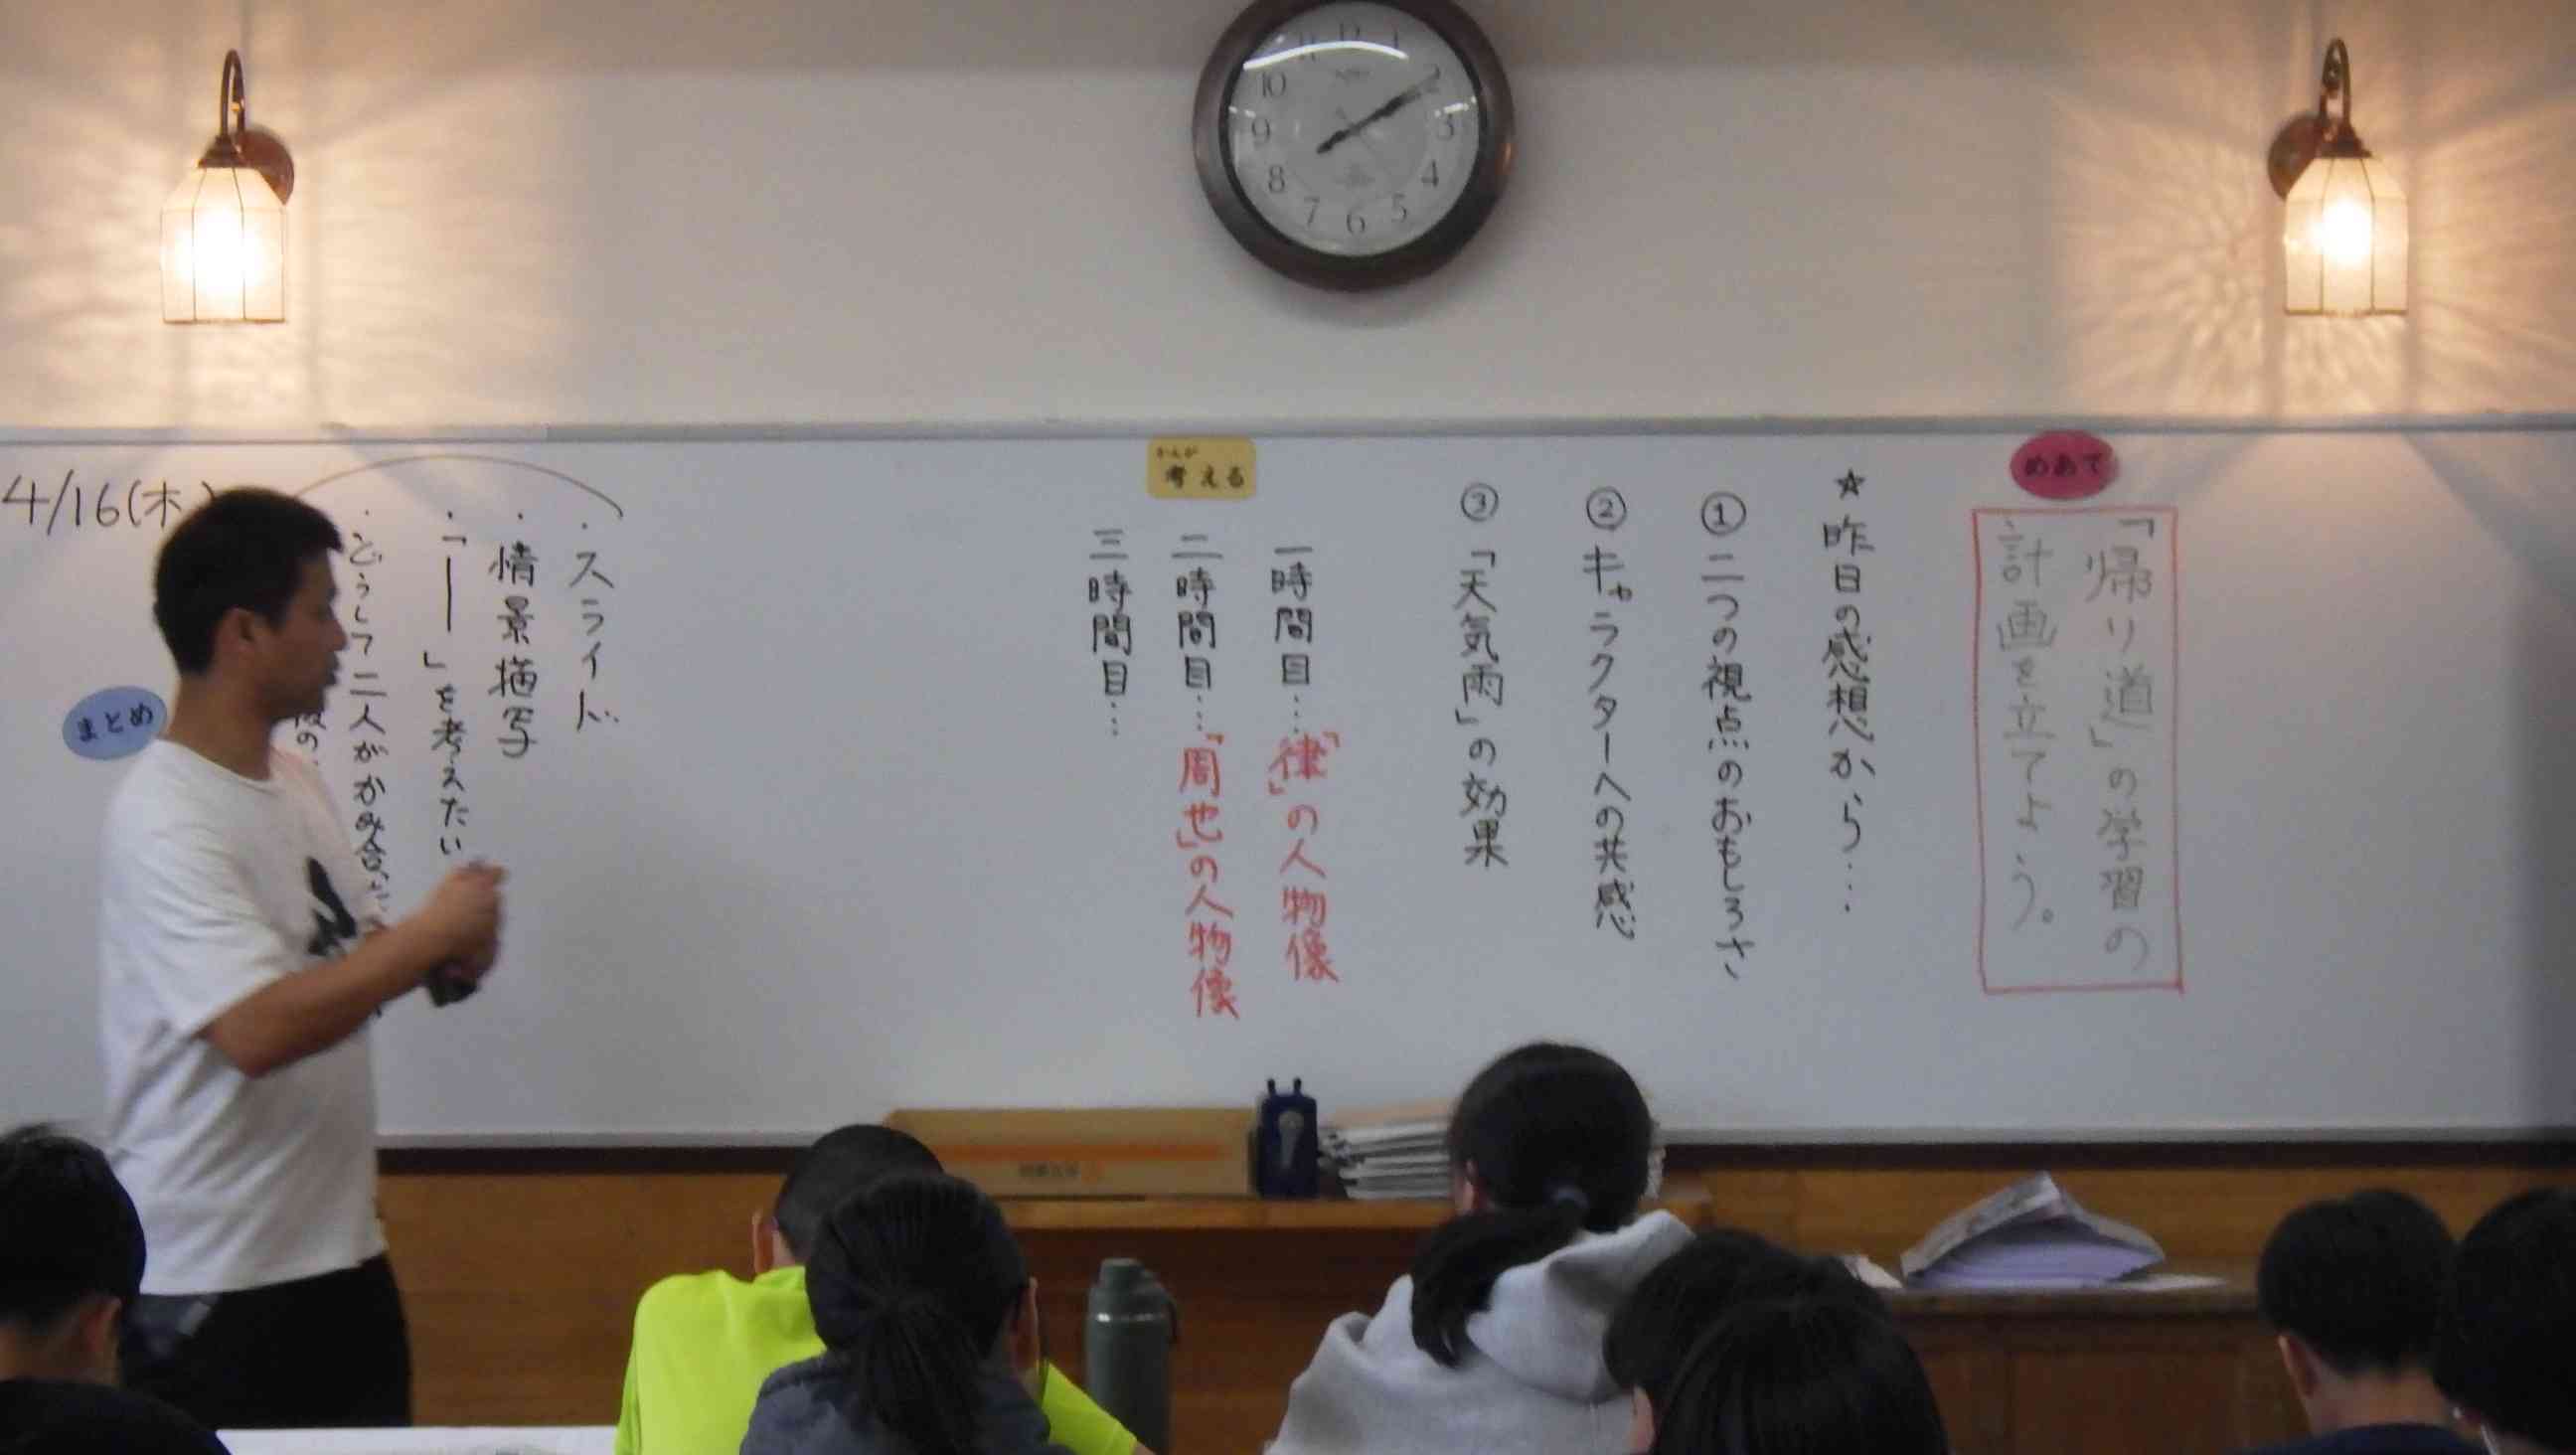 めあて
「帰り道」の学習の
計画を立てよう。
☆昨日の感想から……
①二つの視点のおもしろさ
②キャラクターへの共感
③「天気雨」の効果
かんが
考える
一時間目…「律」の人物像
二時間目…「周也」の人物像
三時間目…
・スライド
・情景描写
・「――」を考えたい
・どうして二人がかみ合
の
まとめ
4/16(木)
12
1
2
3
4
5
6
7
8
9
10
11